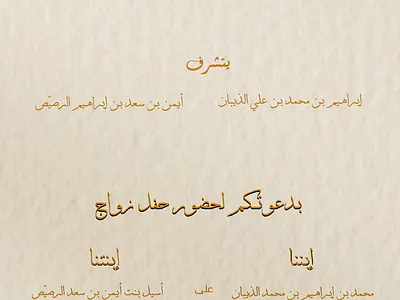 يتشرف
إبراهيم بن محمد بن علي الذيبان أيمن بن سعد بن إبراهيم الرصيّص
بدعوتكم لحضور حفل زواج
إبننا إبنتنا
محمد بن إبراهيم بن محمد الذيبان على أسيل بنت أيمن بن سعد الرصيّص